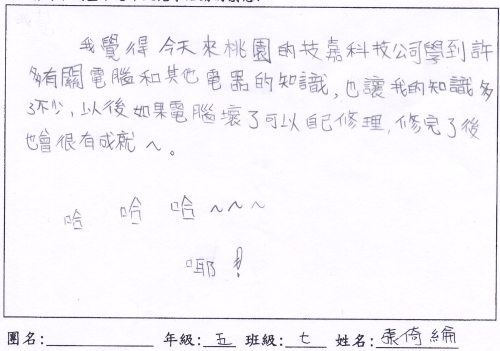 我覺得今天來桃園的技嘉科技公司學到許
多有關電腦和其他電器的知識，也讓我的知識多
了不少，以後如果電腦壞了可以自己修理，修完了後
也會很有成就~。
哈 哈 哈~~~
耶!
團名: 年級:五 班級:七 姓名:張倚綸